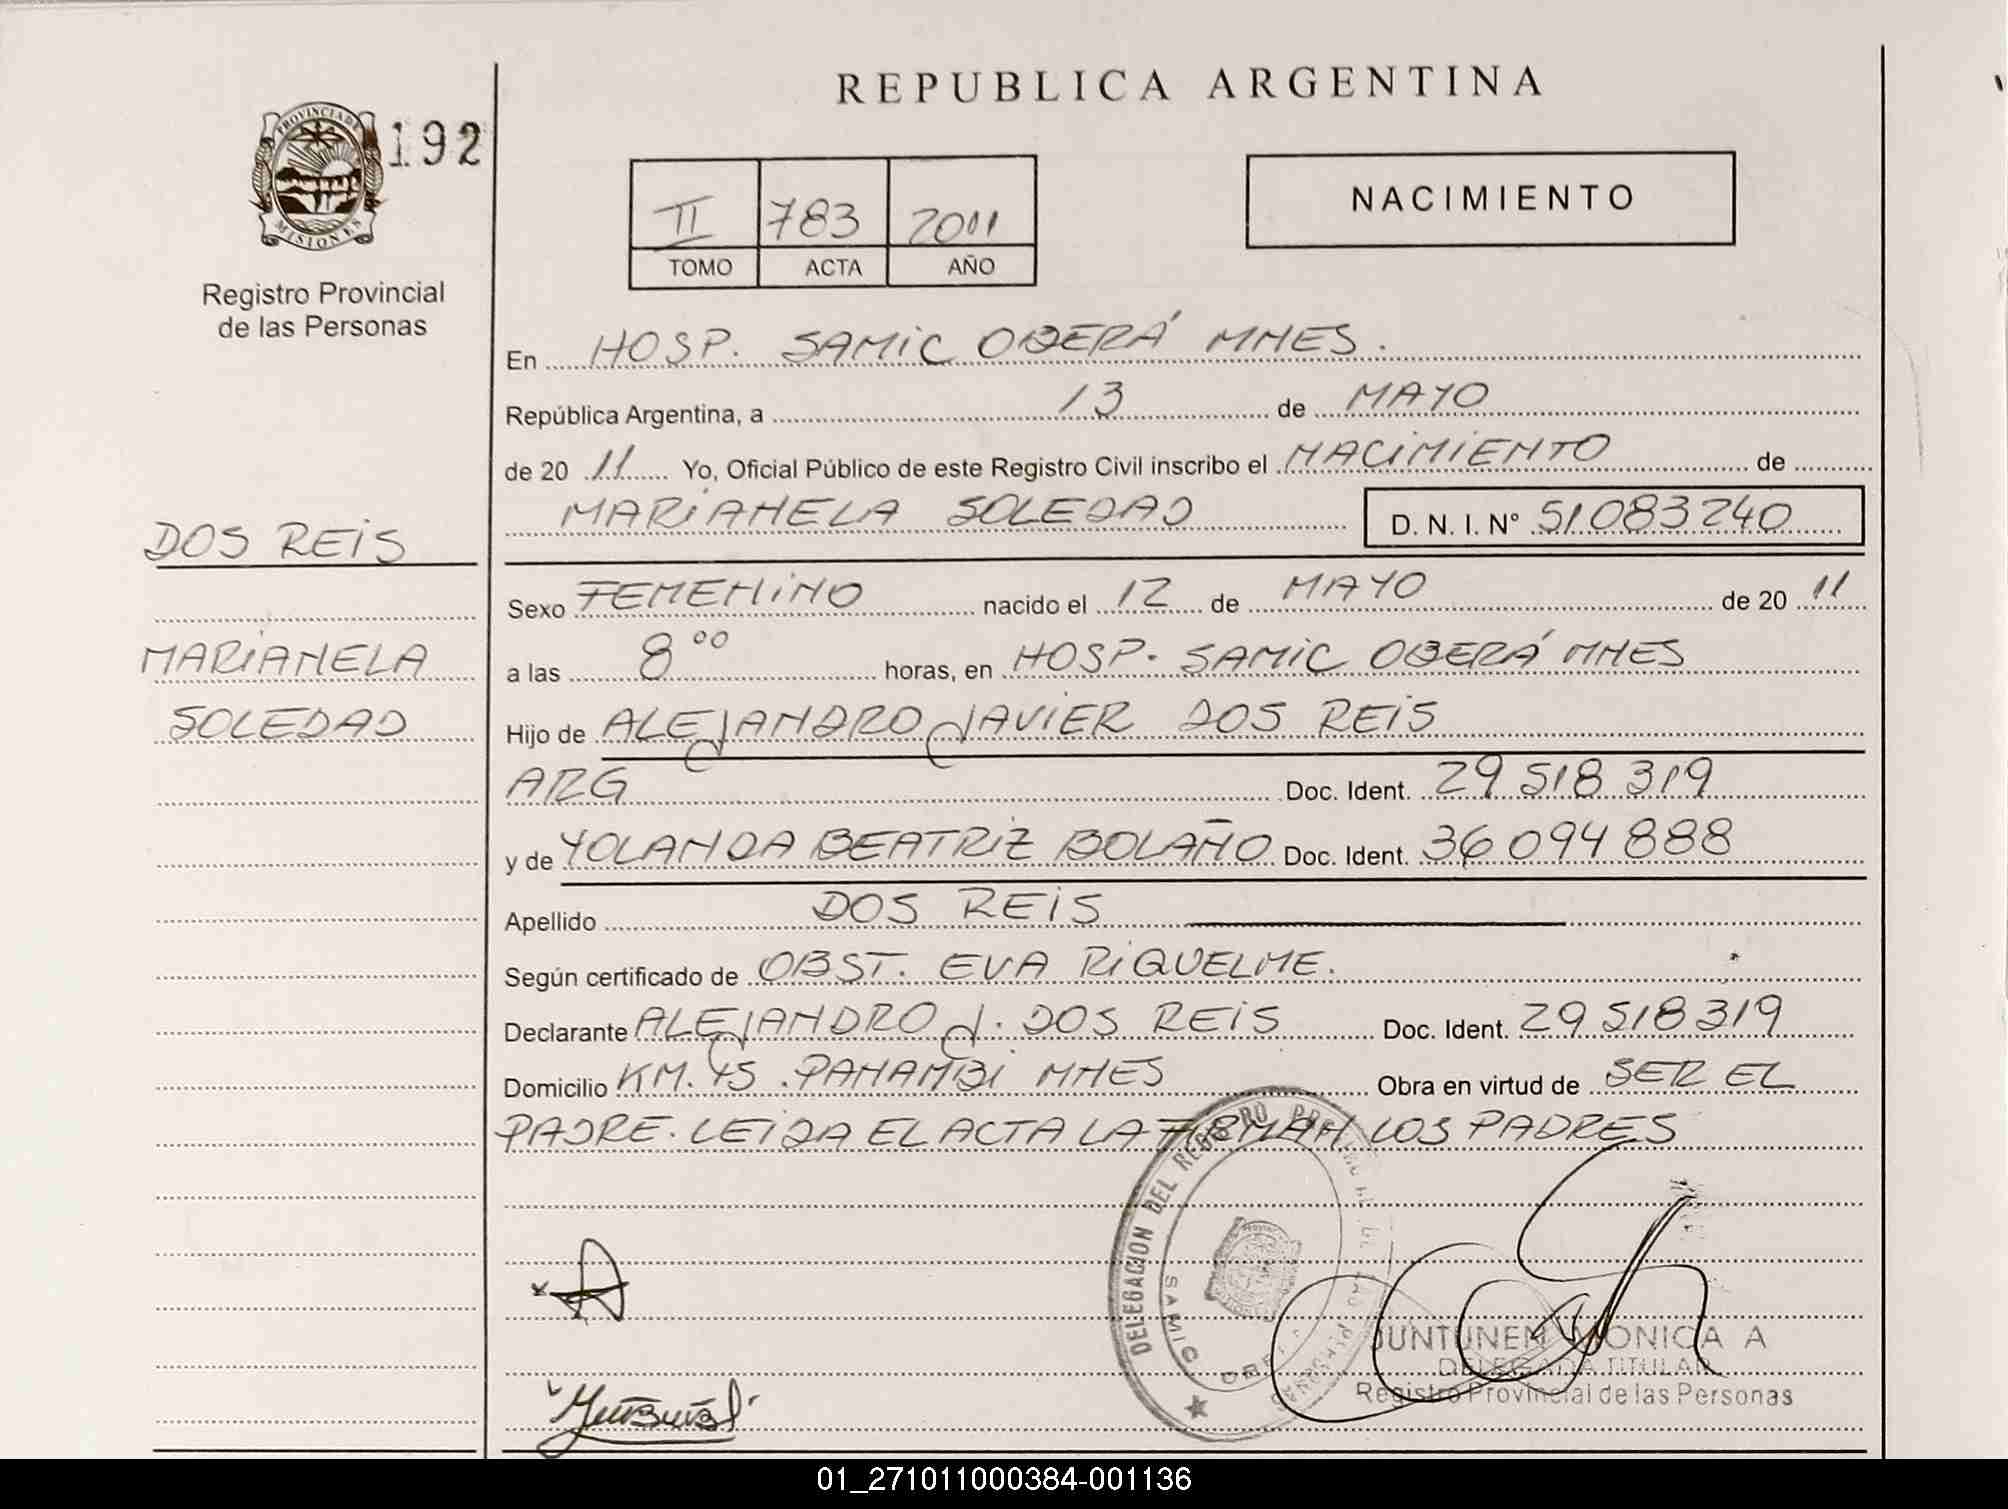 REPUBLICA ARGENTINA
PROVINCIA DE
MISIONES
192
Registro Provincial
de las Personas
II 783 2011
TOMO ACTA AÑO
NACIMIENTO
En HOSP. SAMIC OBERÁ MNES.
República Argentina, a 13 de MAYO
de 20 11 Yo, Oficial Público de este Registro Civil inscribo el NACIMIENTO de
MARIANELA SOLEDAD D. N. I. N° 51083240
DOS REIS
MARIANELA
SOLEDAD
Sexo FEMENINO nacido el 12 de MAYO de 20 11
a las 8 00 horas, en HOSP. SAMIC OBERÁ MNES
Hijo de ALEJANDRO JAVIER DOS REIS
ARG Doc. Ident. 29 518 319
y de YOLANDA BEATRIZ BOLAÑO Doc. Ident. 36 094 888
Apellido DOS REIS
Según certificado de OBST. EVA RIQUELME.
Declarante ALEJANDRO J. DOS REIS Doc. Ident. 29 518 319
Domicilio KM. 45 . PANAMBI MNES Obra en virtud de SER EL
PADRE. LEIDA EL ACTA LA FIRMAN LOS PADRES
DELEGACION DEL REGISTRO
SAMIC
JUNTUNEN MONICA A
DELEGADA TITULAR
Registro Provincial de las Personas
01_271011000384-001136